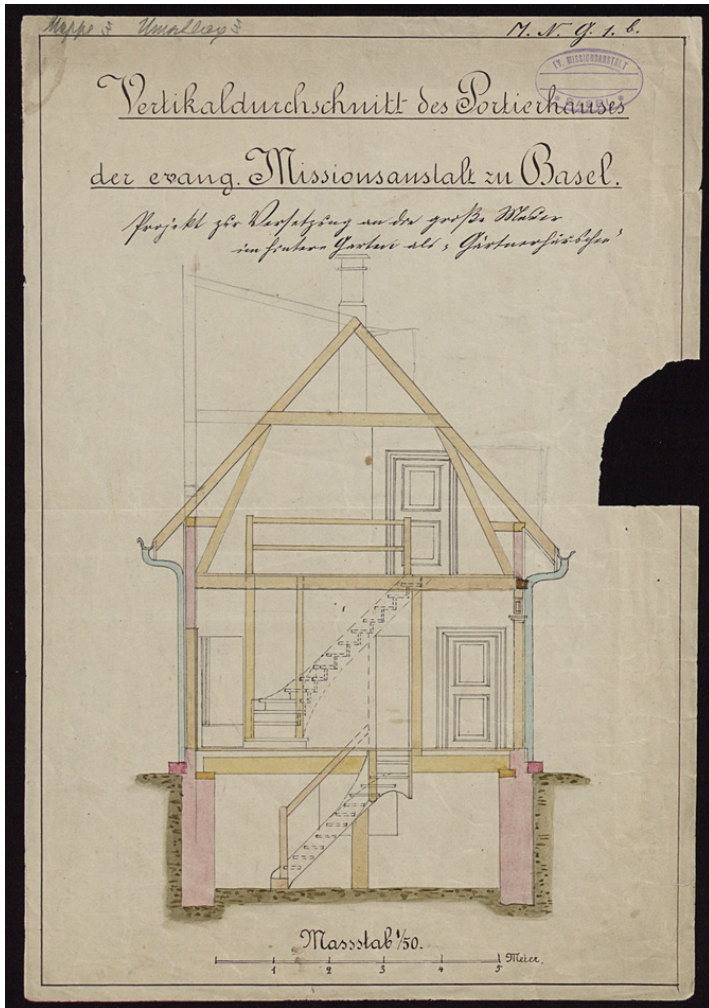 Mappe 3 Umschlag 3
M. N. G. 1. b.
EV. MISSIONSANSTALT
BASEL
Vertikaldurchschnitt des Portierhauses
der evang. Missionsanstalt zu Basel.
Projekt zur Versetzung an die große Mauer
im hintern Garten als „Gärtnerhäuschen“
Massstab 1/50.
1 2 3 4 5 Meter.